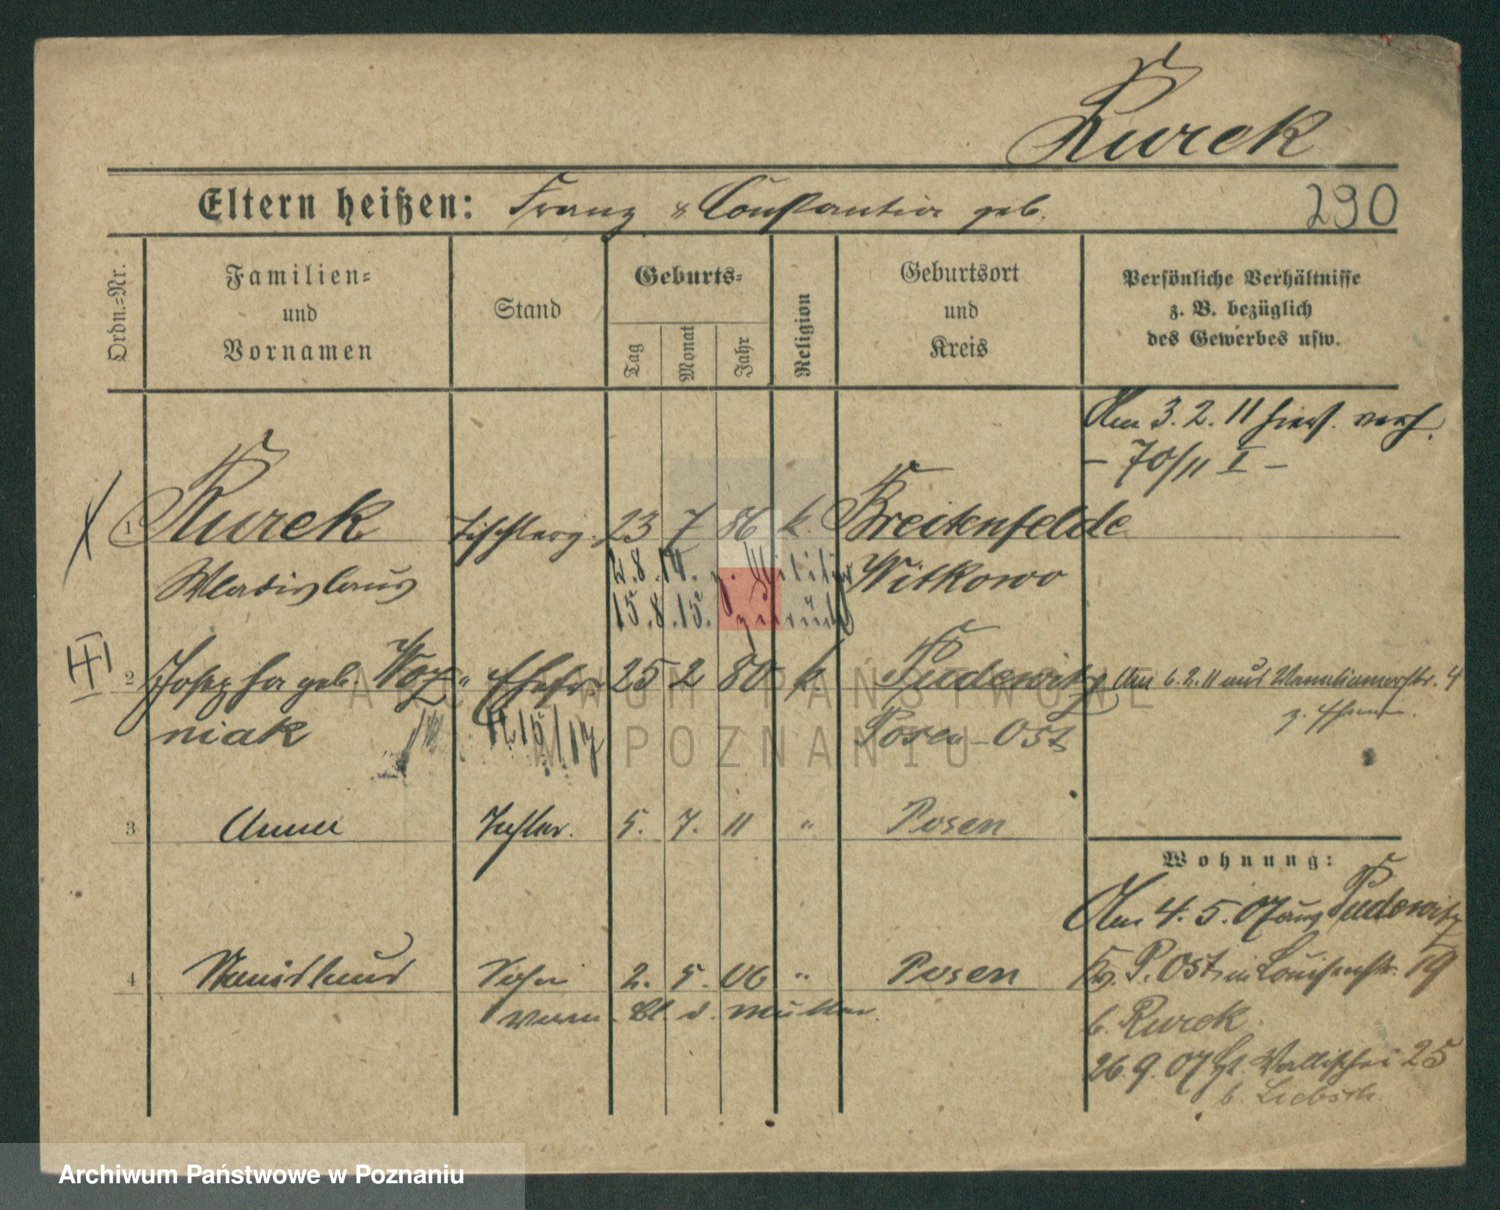 Kurek
Eltern heißen: Franz & Constantia geb.
290
Ordn.=Nr.
Familien=
und
Vornamen
Stand
Geburts=
Tag
Monat
Jahr
Religion
Geburtsort
und
Kreis
Persönliche Verhältnisse
z. B. bezüglich
des Gewerbes usw.
Am 3. 2. 11 hies. verh.
– 70/11 I –
1 Kurek Tischlerg. 23 7 86 k. Breitenfelde
Wladislaus Witkowo
2.8.14. z. Militär
15.8.15. zurück
III
2 Josepha geb. Woz- Ehefr. 25 2 80 k Pudewitz
niak Posen-Ost
Am 6.2.11 aus 4
z. Ehem.
3 Anna Tochter. 5. 7. 11 " Posen
Wohnung:
Am 4. 5. 07 aus Pudewitz
Kr. P. Ost in Louisenstr. 19
b. Kurek
26. 9. 07 Wallischei 25
b. Liebsch
4 Stanislaus Sohn 2. 5. 06 " Posen
d. Mutter.
ARCHIWUM PAŃSTWOWE
W POZNANIU
Archiwum Państwowe w Poznaniu